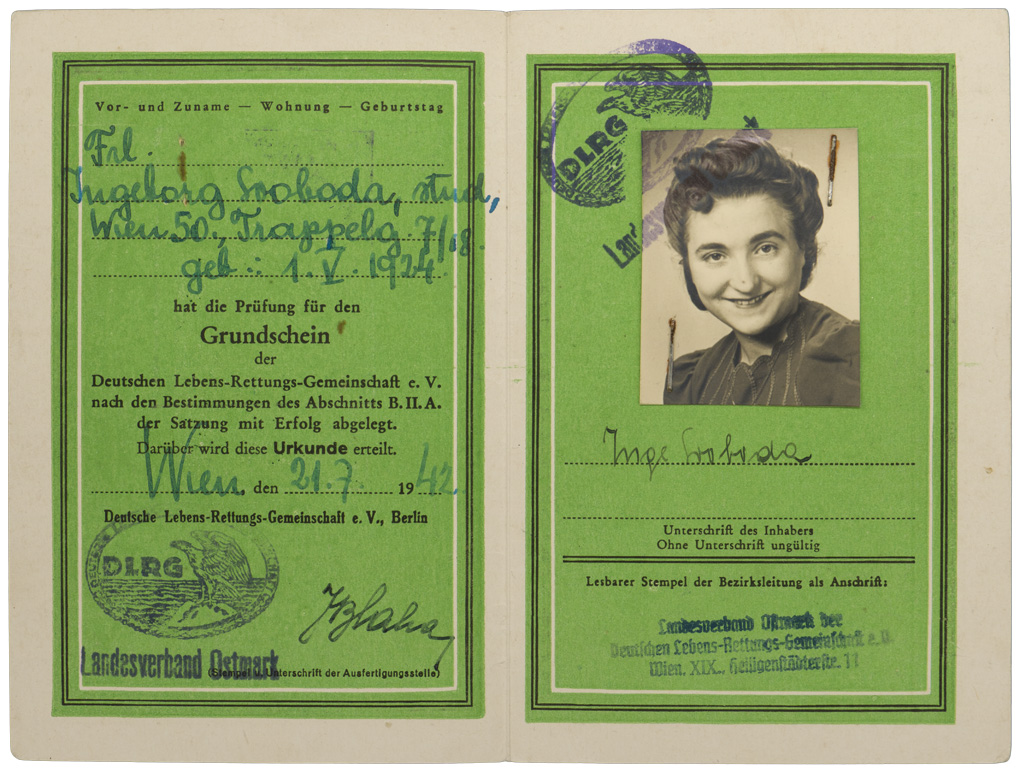 Vor- und Zuname — Wohnung — Geburtstag
Frl.
Ingeborg Svoboda, stud,
Wien 50., Trappelg. 7/18
geb.: 1. V. 1924.
hat die Prüfung für den
Grundschein
der
Deutschen Lebens-Rettungs-Gemeinschaft e. V.
nach den Bestimmungen des Abschnitts B. II. A.
der Satzung mit Erfolg abgelegt.
Darüber wird diese Urkunde erteilt.
Wien, den 21.7. 1942
Deutsche Lebens-Rettungs-Gemeinschaft e. V., Berlin
DLRG
Landesverband Ostmark
(Stempel u. Unterschrift der Ausfertigungsstelle)
DLRG
Inge Svoboda
Unterschrift des Inhabers
Ohne Unterschrift ungültig
Lesbarer Stempel der Bezirksleitung als Anschrift:
Landesverband Ostmark der
Deutschen Lebens-Rettungs-Gemeinschaft e. V.
Wien, XIX., Heiligenstädterstr. 11